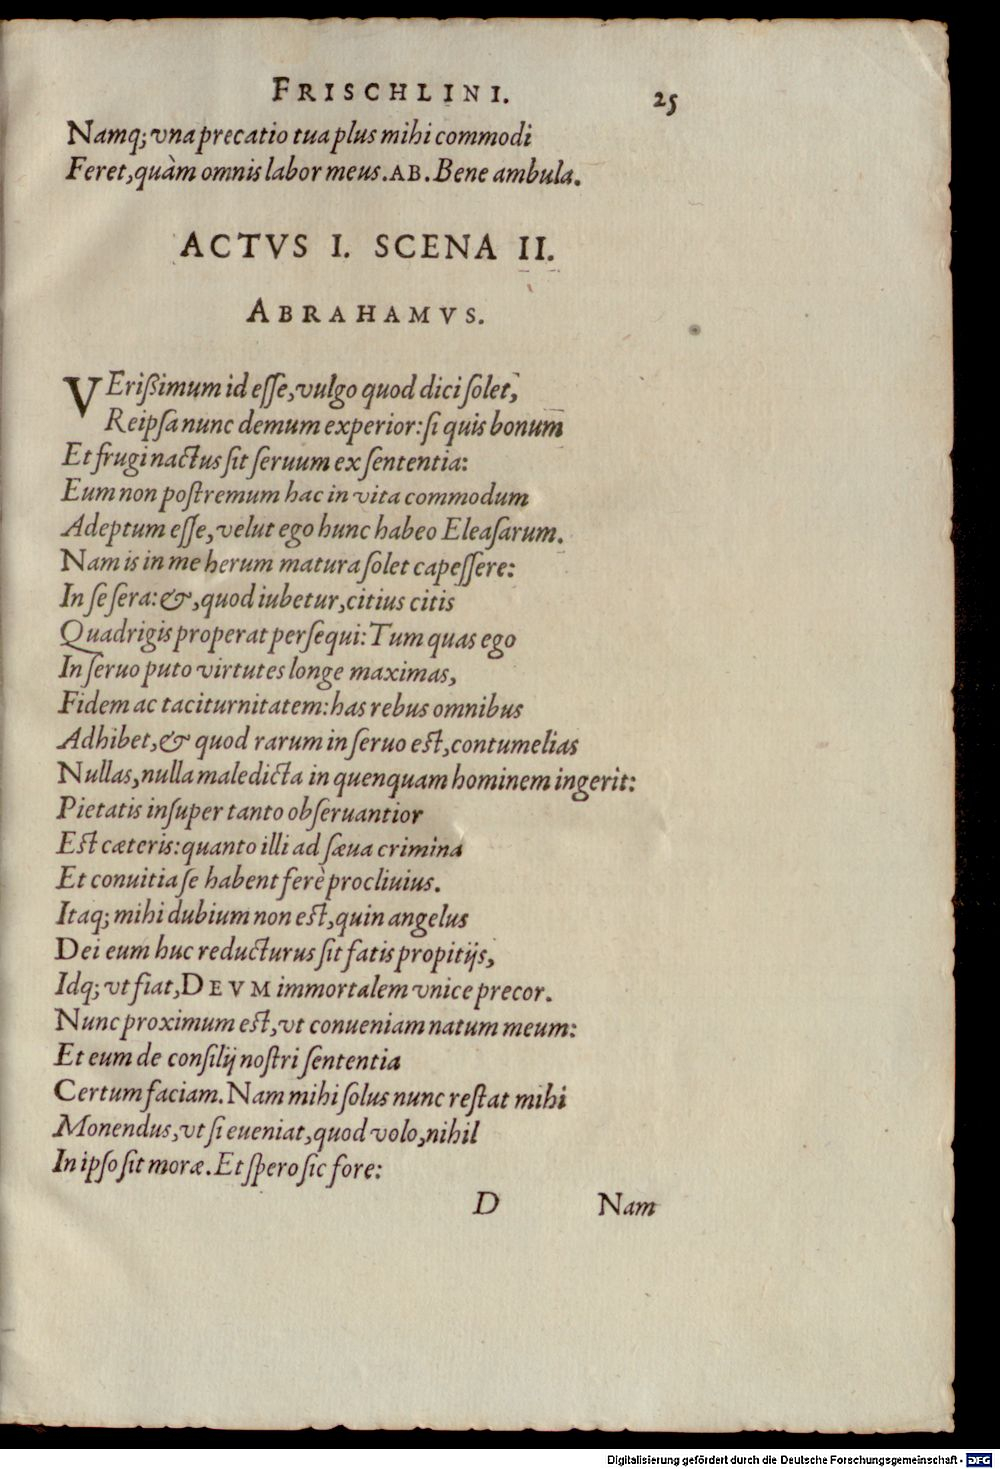 FRISCHLINI. 25
Namq; vna precatio tua plus mihi commodi
Feret, quàm omnis labor meus. AB. Bene ambula.
ACTVS I. SCENA II.
ABRAHAMVS.
VErißimum id eſſe, vulgo quod dici ſolet,
Reipſa nunc demum experior: ſi quis bonum
Et frugi nactus ſit ſeruum ex ſententia:
Eum non poſtremum hac in vita commodum
Adeptum eſſe, velut ego hunc habeo Eleaſarum.
Nam is in me herum matura ſolet capeſſere:
In ſe ſera: &, quod iubetur, citius citis
Quadrigis properat perſequi: Tum quas ego
In ſeruo puto virtutes longe maximas,
Fidem ac taciturnitatem: has rebus omnibus
Adhibet, & quod rarum in ſeruo eſt, contumelias
Nullas, nulla maledicta in quenquam hominem ingerit:
Pietatis inſuper tanto obſeruantior
Eſt cæteris: quanto illi ad ſæua crimina
Et conuitia ſe habent ferè procliuius.
Itaq; mihi dubium non eſt, quin angelus
Dei eum huc reducturus ſit fatis propitijs,
Idq; vt fiat, DEVM immortalem vnice precor.
Nunc proximum eſt, vt conueniam natum meum:
Et eum de conſilij noſtri ſententia
Certum faciam. Nam mihi ſolus nunc reſtat mihi
Monendus, vt ſi eueniat, quod volo, nihil
In ipſo ſit moræ. Et ſpero ſic fore:
D Nam
Digitalisierung gefördert durch die Deutsche Forschungsgemeinschaft - DFG